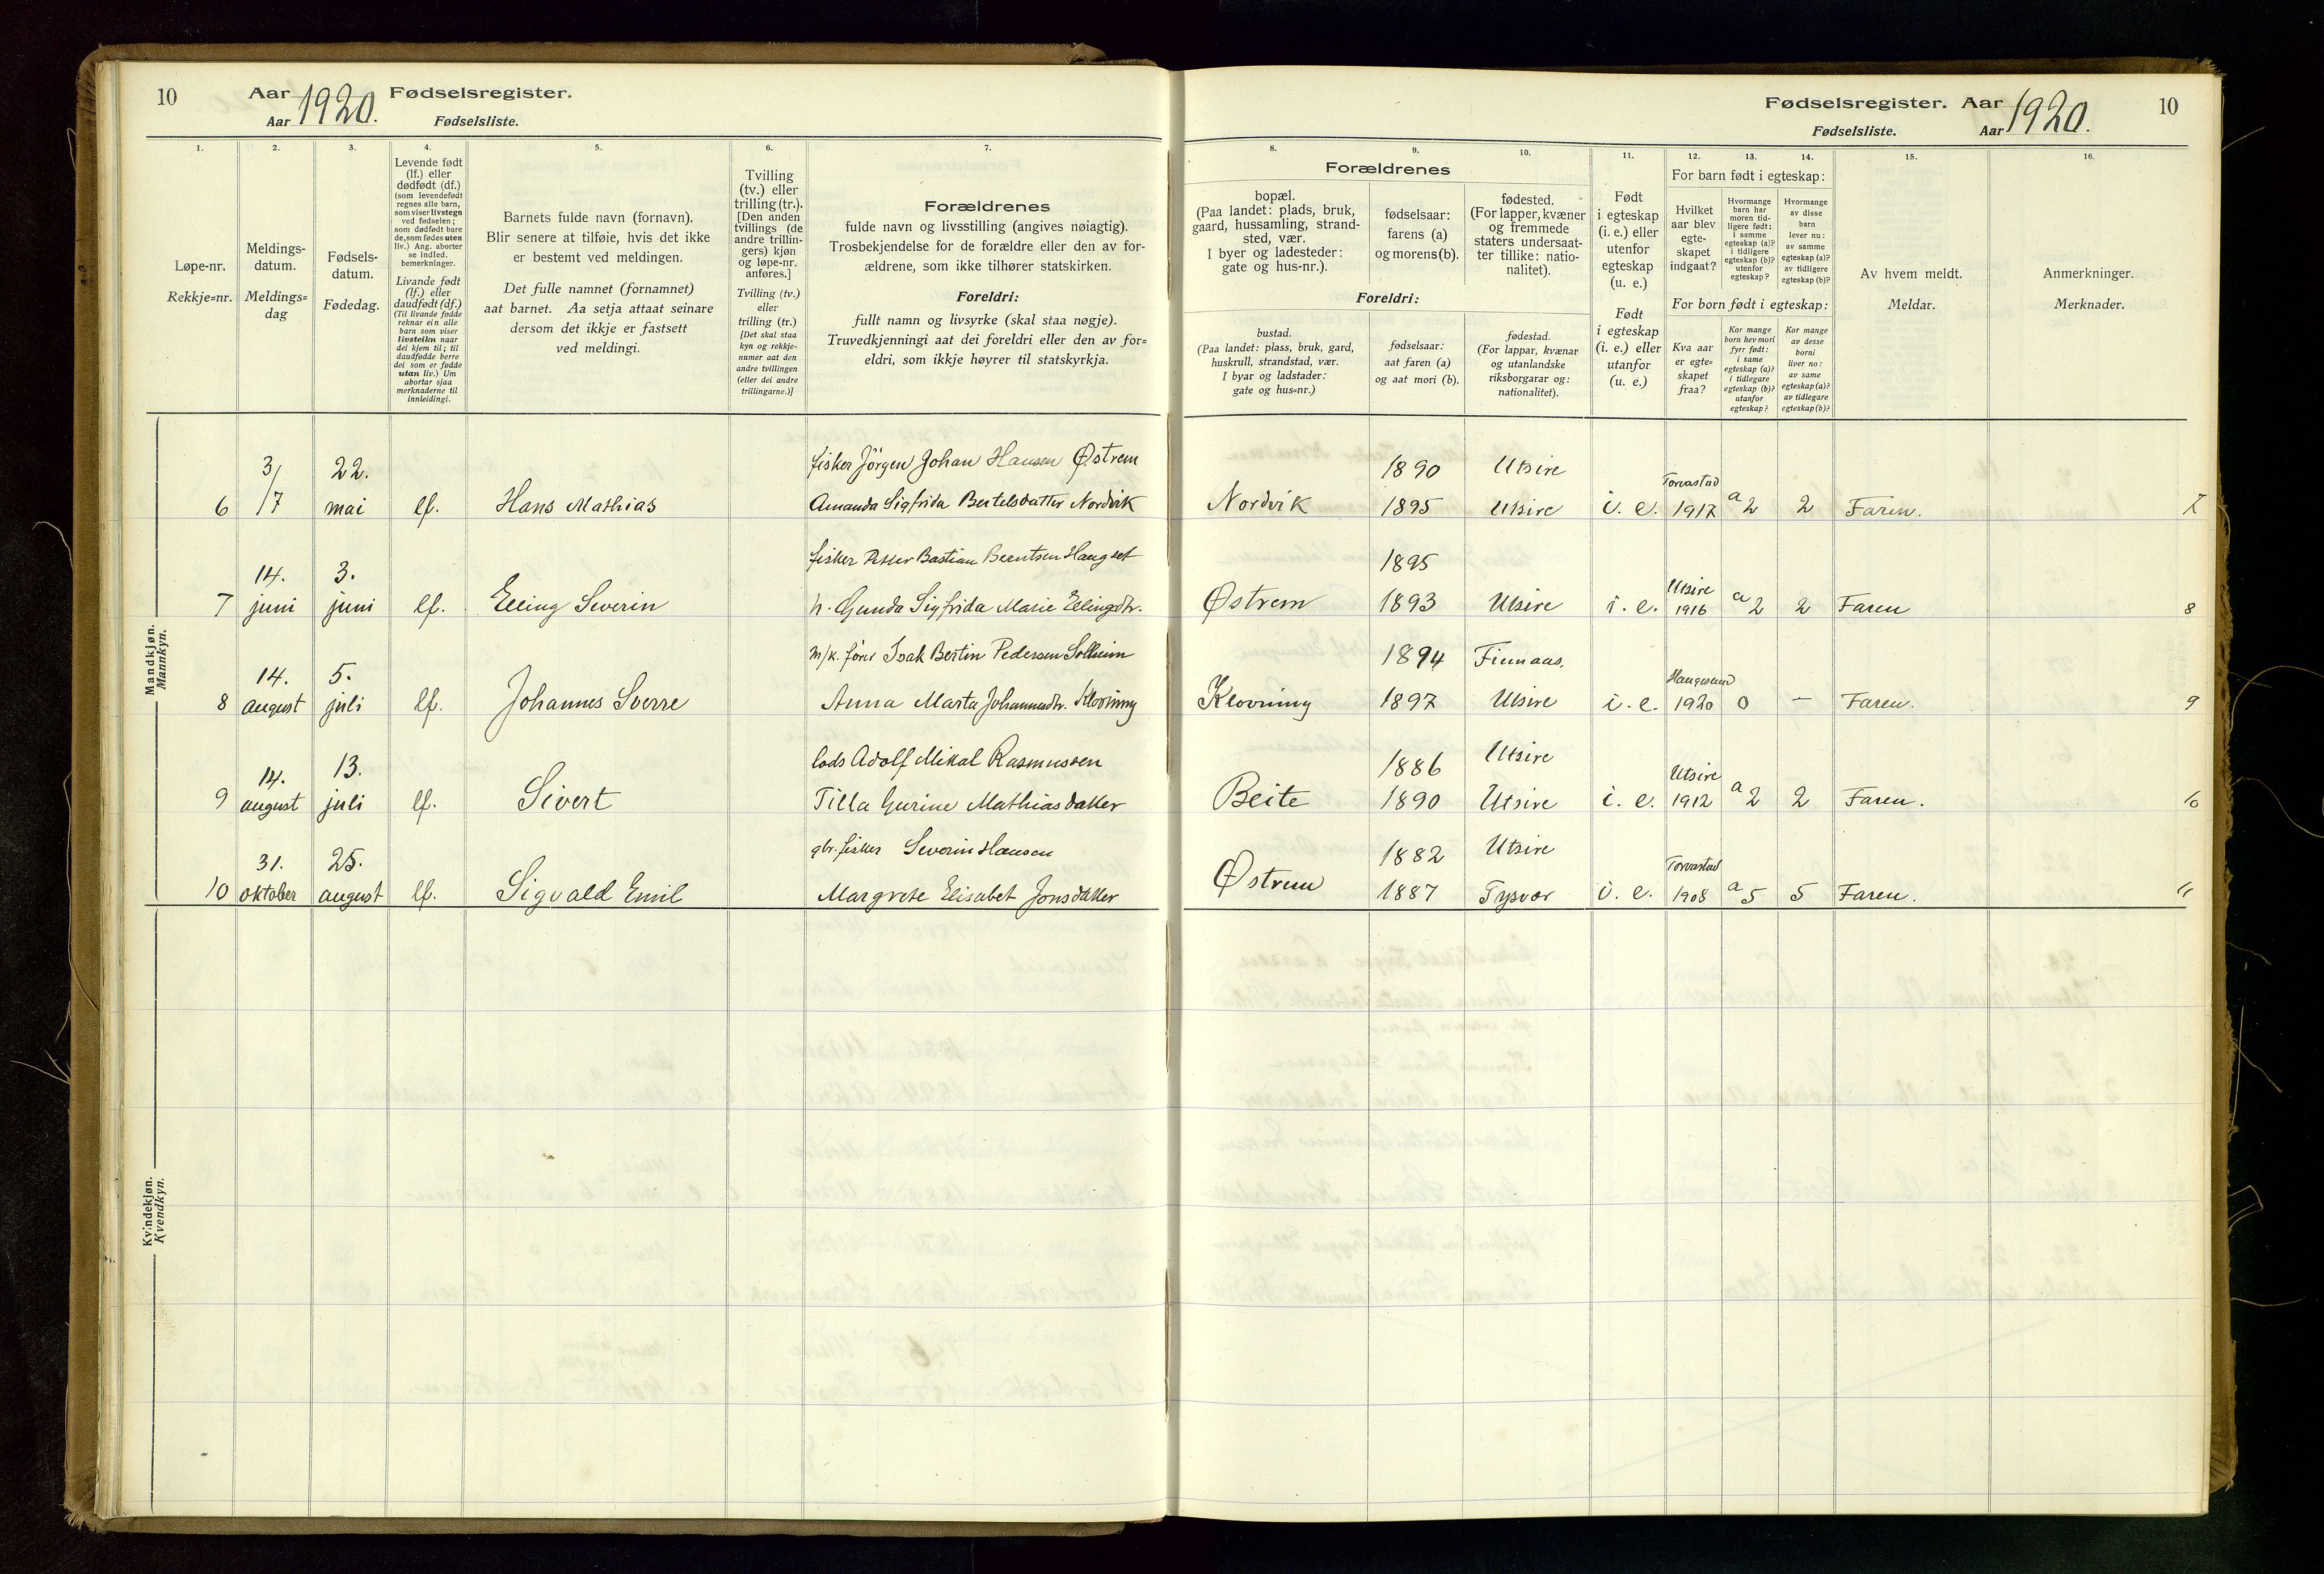 10
Aar 1920. Fødselsregister.
Aar Fødselsliste.
1.
2.
3.
4.
5.
6.
7.
Løpe-nr.
Rekkje=nr.
Meldings-
datum.
Meldings=
dag
Fødsels-
datum.
Fødedag.
Levende født
(lf.) eller
dødfødt (df.)
(som levendefødt
regnes alle barn,
som viser livstegn
ved fødselen;
som dødfødt bare
de, som fødes uten
liv.) Ang. aborter
se indled.
bemerkninger.
Livande født
(lf.) eller
daudfødt (df.)
(Til livande fødde
reknar ein alle
barn som viser
livsteikn naar
dei kjem til; til
daudfødde berre
dei som er fødde
utan liv.) Um
abortar sjaa
merknaderne til
innleidingi.
Barnets fulde navn (fornavn).
Blir senere at tilføie, hvis det ikke
er bestemt ved meldingen.
Det fulle namnet (fornamnet)
aat barnet. Aa setja attaat seinare
dersom det ikkje er fastsett
ved meldingi.
Tvilling
(tv.) eller
trilling (tr.).
[Den anden
tvillings (de
andre trillin-
gers) kjøn
og løpe-nr.
anføres.]
Tvilling (tv.)
eller
trilling (tr.)
[Det skal staa
kyn og rekkje-
numer aat den
andre tvillingen
(eller dei andre
trillingarne.)]
Forældrenes
fulde navn og livsstilling (angives nøiagtig).
Trosbekjendelse for de forældre eller den av for-
ældrene, som ikke tilhører statskirken.
Foreldri:
fullt namn og livsyrke (skal staa nøgje).
Truvedkjenningi aat dei foreldri eller den av for=
eldri, som ikkje høyrer til statskyrkja.
Mandkjøn.
Mannkyn.
fisker Jörgen Johan Hansen Østrem
6 3/7 22. mai lf. Hans Mathias Amanda Sigfrida Bertelsdatter Nordvik
fisker Petter Bastian Berntsen Haugset
7 14. juni 3. juni lf. Elling Severin h. Gunda Sigfrida Marie Ellingsdtr.
m/k. fører Isak Bertin Pedersen Sollheim
8 14. august 5. juli lf. Johannes Sverre Anna Marta Johannesdtr. Klovning
lods Adolf Mikal Rasmussen
9 14. august 13. juli lf. Sivert Tilla Gurine Mathiasdatter
gbr. fisker Severin Hansen
10 31. oktober 25. august lf. Sigvald Emil Margrete Elisabet Jonsdatter
Kvindekjøn.
Kvendkyn.
Fødselsregister. Aar 1920. 10
Fødselsliste. Aar
8.
9.
10.
11.
12.
13.
14.
15.
16.
Forældrenes
bopæl.
(Paa landet: plads, bruk,
gaard, hussamling, strand-
sted, vær.
I byer og ladesteder:
gate og hus-nr.).
fødselsaar:
farens (a)
og morens (b).
fødested.
(For lapper, kvæner
og fremmede
staters undersaat-
ter tillike: natio-
nalitet).
Foreldri:
bustad.
(Paa landet: plass, bruk, gard,
huskrull, strandstad, vær.
I byar og ladstader:
gate og hus-nr.)
fødselsaar:
aat faren (a)
og aat mori (b).
fødestad.
(For lappar, kvænar
og utanlandske
riksborgarar og:
nationalitet).
Født
i egteskap
(i. e.) eller
utenfor
egteskap
(u. e.)
Født
i egteskap
(i. e.) eller
utanfor
(u. e.)
For barn født i egteskap:
Hvilket
aar blev
egte-
skapet
indgaat?
Hvormange
barn har
moren tid-
ligere født:
i samme
egteskap (a)?
i tidligere
egteskap (b)?
utenfor
egteskap?
Hvormange
av disse
barn
lever nu:
av samme
egteskap (a)?
av tidligere
egteskap (b)?
For born født i egteskap:
Kva aar
er egte=
skapet
fraa?
Kor mange
born hev mori
fyrr født:
i same
egteskap (a)?
i tidlegare
egteskap (b)?
utanfor
egteskap?
Kor mange
av desse
borni
liver no:
av same
egteskap (a)?
av tidlegare
egteskap (b)?
Av hvem meldt.
Meldar.
Anmerkninger.
Merknader.
1890 Utsire
Nordvik 1895 Utsire i. e. Torvastad 1917 a 2 2 Faren. 7
1895
Østrem 1893 Utsire i. e. Utsire 1916 a 2 2 Faren 8
1894 Finnaas.
Klovning 1897 Utsire i. e. Haugesund 1920 0 – Faren. 9
1886 Utsire
Beite 1890 Utsire i. e. Utsire 1912 a 2 2 Faren. 10
1882 Utsire
Østrem 1887 Tysvær i. e. Torvastad 1908 a 5 5 Faren. 11